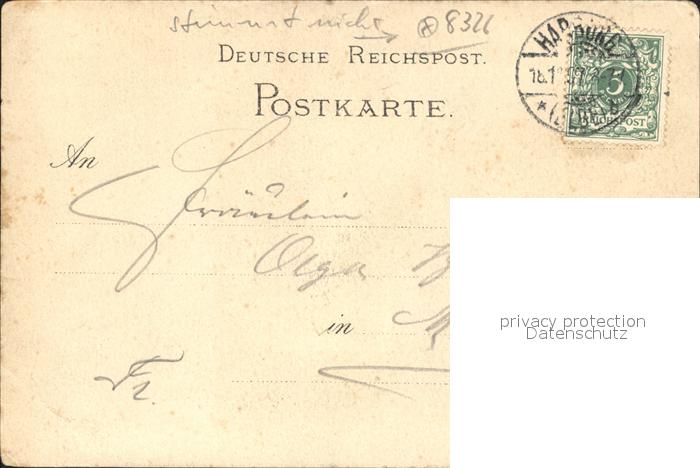 stimmt nicht 8326
DEUTSCHE REICHSPOST.
POSTKARTE.
HARBURG
5
REICHSPOST
An
Fräulein
Olga
in
Fr.
privacy protection
Datenschutz